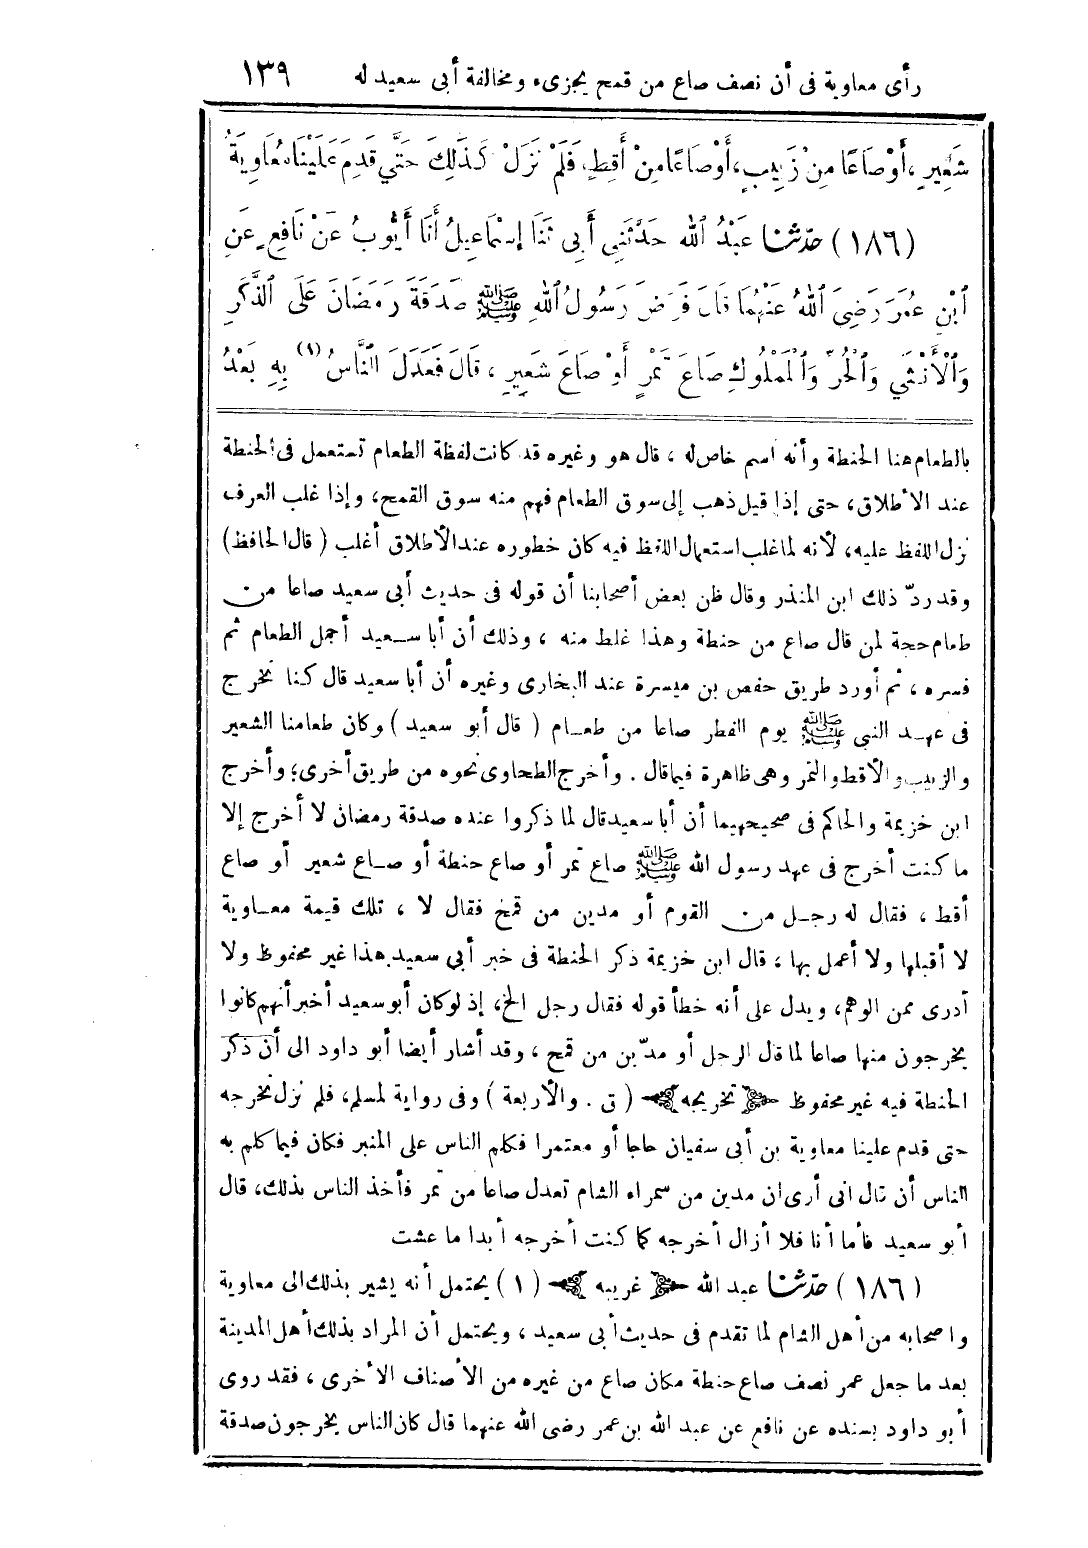 رأى معاوية فى أن نصف صاع من قمح يجزىء ومخالفة أبى سعيد له ١٣٩
شَعِيرٍ، أَوْ صَاعًا مِنْ زَبِيبٍ، أَوْ صَاعًا مِنْ أَقِطٍ، فَلَمْ نَزَلْ كَذَلِكَ حَتَّى قَدِمَ عَلَيْنَا مُعَاوِيَةُ
(١٨٦) حَدَّثَنَا عَبْدُ اللهِ حَدَّثَنِى أَبِى ثَنَا إِسْمَاعِيلُ أَنَا أَيُّوبُ عَنْ نَافِعٍ عَنِ
ابْنِ عُمَرَ رَضِىَ اللهُ عَنْهُمَا قَالَ فَرَضَ رَسُولُ اللهِ ﷺ صَدَقَةَ رَمَضَانَ عَلَى الذَّكَرِ
وَالْأُنْثَى وَالْحُرِّ وَالْمَمْلُوكِ صَاعَ تَمْرٍ أَوْ صَاعَ شَعِيرٍ، قَالَ فَعَدَلَ النَّاسُ (١) بِهِ بَعْدُ
بالطعام هنا الحنطة وأنه اسم خاص له، قال هو وغيره قد كانت لفظة الطعام تستعمل فى الحنطة
عند الأطلاق، حتى إذا قيل ذهب إلى سوق الطعام فهم منه سوق القمح، وإذا غلب العرف
نزل اللفظ عليه، لأنه لما غلب استعمال اللفظ فيه كان خطوره عند الأطلاق أغلب (قال الحافظ)
وقد ردّ ذلك ابن المنذر وقال ظن بعض أصحابنا أن قوله فى حديث أبى سعيد صاعا من
طعام حجة لمن قال صاع من حنطة وهذا غلط منه، وذلك أن أبا سعيد أجمل الطعام ثم
فسره، ثم أورد طريق حفص بن ميسرة عند البخارى وغيره أن أبا سعيد قال كنا نخرج
فى عهد النبى ﷺ يوم الفطر صاعا من طعام (قال أبو سعيد) وكان طعامنا الشعير
والزبيب والأقط والتمر وهى ظاهرة فيما قال. وأخرج الطحاوى نحوه من طريق أخرى؛ وأخرج
ابن خزيمة والحاكم فى صحيحيهما أن أبا سعيد قال لما ذكروا عنده صدقة رمضان لا أخرج إلا
ما كنت أخرج فى عهد رسول الله ﷺ صاع تمر أو صاع حنطة أو صاع شعير أو صاع
أقط، فقال له رجل من القوم أو مدين من قمح فقال لا، تلك قيمة معاوية
لا أقبلها ولا أعمل بها، قال ابن خزيمة ذكر الحنطة فى خبر أبى سعيد هذا غير محفوظ ولا
أدرى ممن الوهم، ويدل على أنه خطأ قوله فقال رجل الخ، إذ لو كان أبو سعيد أخبر أنهم كانوا
يخرجون منها صاعا لما قال الرجل أو مدّين من قمح، وقد أشار أيضا أبو داود الى أن ذكر
الحنطة فيه غير محفوظ تخريجه (ق. والأربعة) وفى رواية لمسلم، فلم نزل نخرجه
حتى قدم علينا معاوية بن أبى سفيان حاجا أو معتمرا فكلم الناس على المنبر فكان فيما كلم به
الناس أن قال انى أرى ان مدين من سمراء الشام تعدل صاعا من تمر فأخذ الناس بذلك، قال
أبو سعيد فأما أنا فلا أزال أخرجه كما كنت أخرجه أبدا ما عشت
(١٨٦) حدّثنا عبد الله غريبه (١) يحتمل أنه يشير بذلك الى معاوية
واصحابه من أهل الشام لما تقدم فى حديث أبى سعيد، ويحتمل أن المراد بذلك أهل المدينة
بعد ما جعل عمر نصف صاع حنطة مكان صاع من غيره من الأصناف الأخرى، فقد روى
أبو داود بسنده عن نافع عن عبد الله بن عمر رضى الله عنهما قال كان الناس يخرجون صدقة